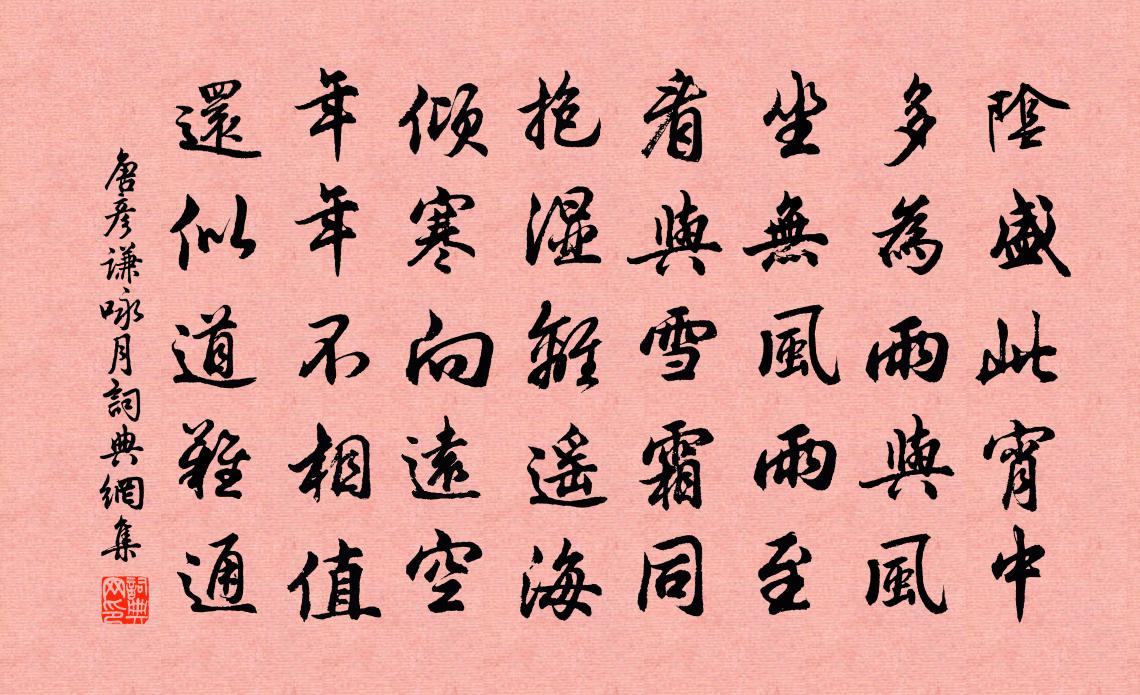 陰盛此宵中
多為雨與風
坐無風雨至
看與雪霜同
抱濕離遥海
傾寒向遠空
年年不相值
還似道難通
唐彦謙咏月詞典網集
詞典网印